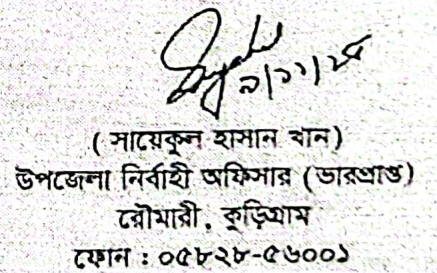 ৯/১১/২৫
( সায়েকুল হাসান খান)
উপজেলা নির্বাহী অফিসার (ভারপ্রাপ্ত)
রৌমারী, কুড়িগ্রাম
ফোন : ০৫৮২৮-৫৬০০১